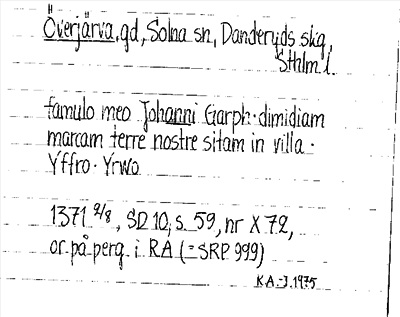 Överjärva, gd, Solna sn, Danderyds skg,
Sthlm l.
famulo meo Johanni Garph · dimidiam
marcam terre nostre sitam in villa ·
Yffro · Yrwo
1371 2/8, SD 10, s. 59, nr X 72,
or. på perg. i RA (= SRP 999)
K.A.-J. 1975